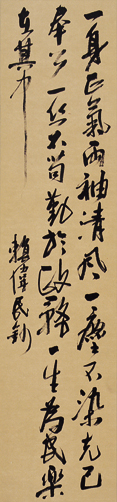 一身正氣兩袖清風一塵不染克己
奉公一丝不苟勤於政務一生為民樂
在其中